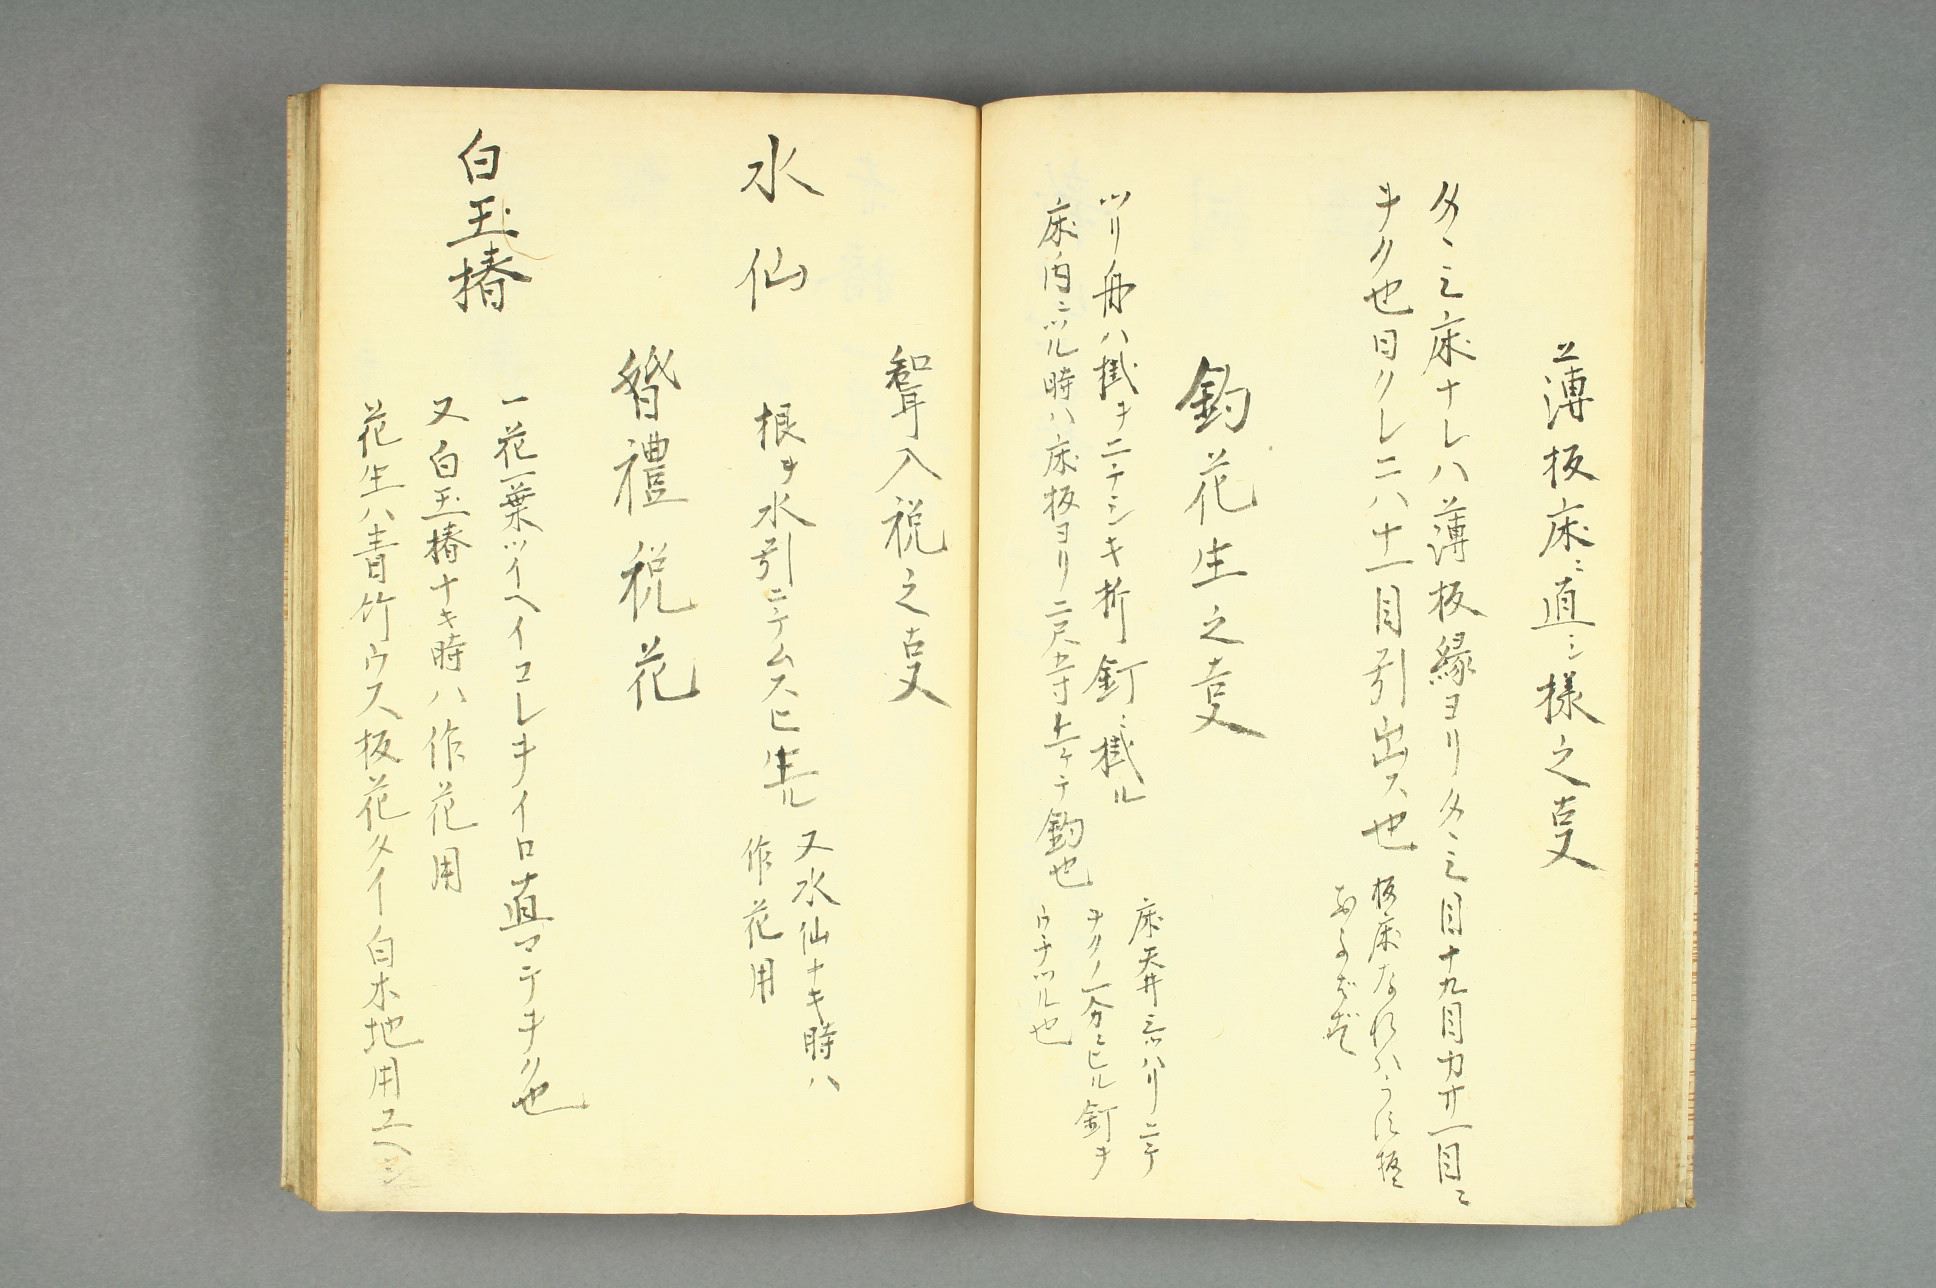 薄板床ニ直シ様之㕝
タヽミ床ナレハ薄板縁ヨリタヽミ目十九目カ廿一目ニ
ヲク也日クレニハ十一目引出ス也
板床なれハうす板
釣花生之㕝
ツリ舟ハ掛ヲニナシキ折釘ニ掛ル
床内ニツル時ハ床板ヨリ二尺
上ケテ釣也
床天井
ハリニテ
ヲクノ一分ニヒル釘ヲ
ウチツル也
聟入祝之㕝
水仙
根ヲ水引ニテムスヒ生ル
又水仙ナキ時ハ
作花用
聟禮祝花
白玉椿
一花一葉ツイヘイコレヲイロ直マテヲク也
又白玉椿ナキ時ハ作花用
花生ハ青竹ウス板花タイ白木地用ユヘシ